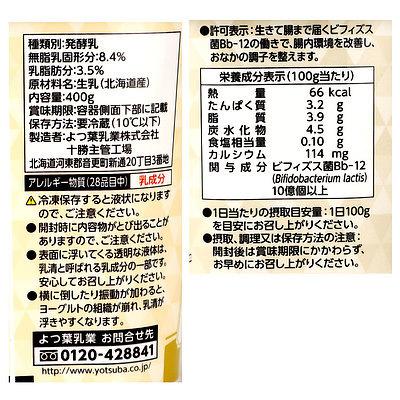 種類別:発酵乳
無脂乳固形分:8.4%
乳脂肪分:3.5%
原材料名:生乳(北海道産)
内容量:400g
賞味期限:容器側面下部に記載
保存方法:要冷蔵(10℃以下)
製造者:よつ葉乳業株式会社
十勝主管工場
北海道河東郡音更町新通20丁目3番地
アレルギー物質(28品目中) 乳成分
⚠冷凍保存すると液状になりますので、ご注意ください。
●開封時に内容物がとび出ることがありますので、ご注意ください。
●表面に浮いてくる透明な液体は、乳清と呼ばれる乳成分の一部です。安心してお召し上がりください。
●横に倒したり振動が加わると、ヨーグルトの組織が崩れ、乳清が浮きやすくなります。
よつ葉乳業 お問合せ先
0120-428841
http://www.yotsuba.co.jp/
●許可表示:生きて腸まで届くビフィズス
菌Bb-12の働きで、腸内環境を改善し、
おなかの調子を整えます。
栄養成分表示(100g当たり)
熱量 66 kcal
たんぱく質 3.2 g
脂質 3.9 g
炭水化物 4.5 g
食塩相当量 0.10 g
カルシウム 114 mg
関与成分 ビフィズス菌Bb-12
(Bifidobacterium lactis)
10億個以上
●1日当たりの摂取目安量:1日100g
を目安にお召し上がりください。
●摂取、調理又は保存方法の注意:
開封後は賞味期限にかかわらず、
お早めにお召し上がりください。